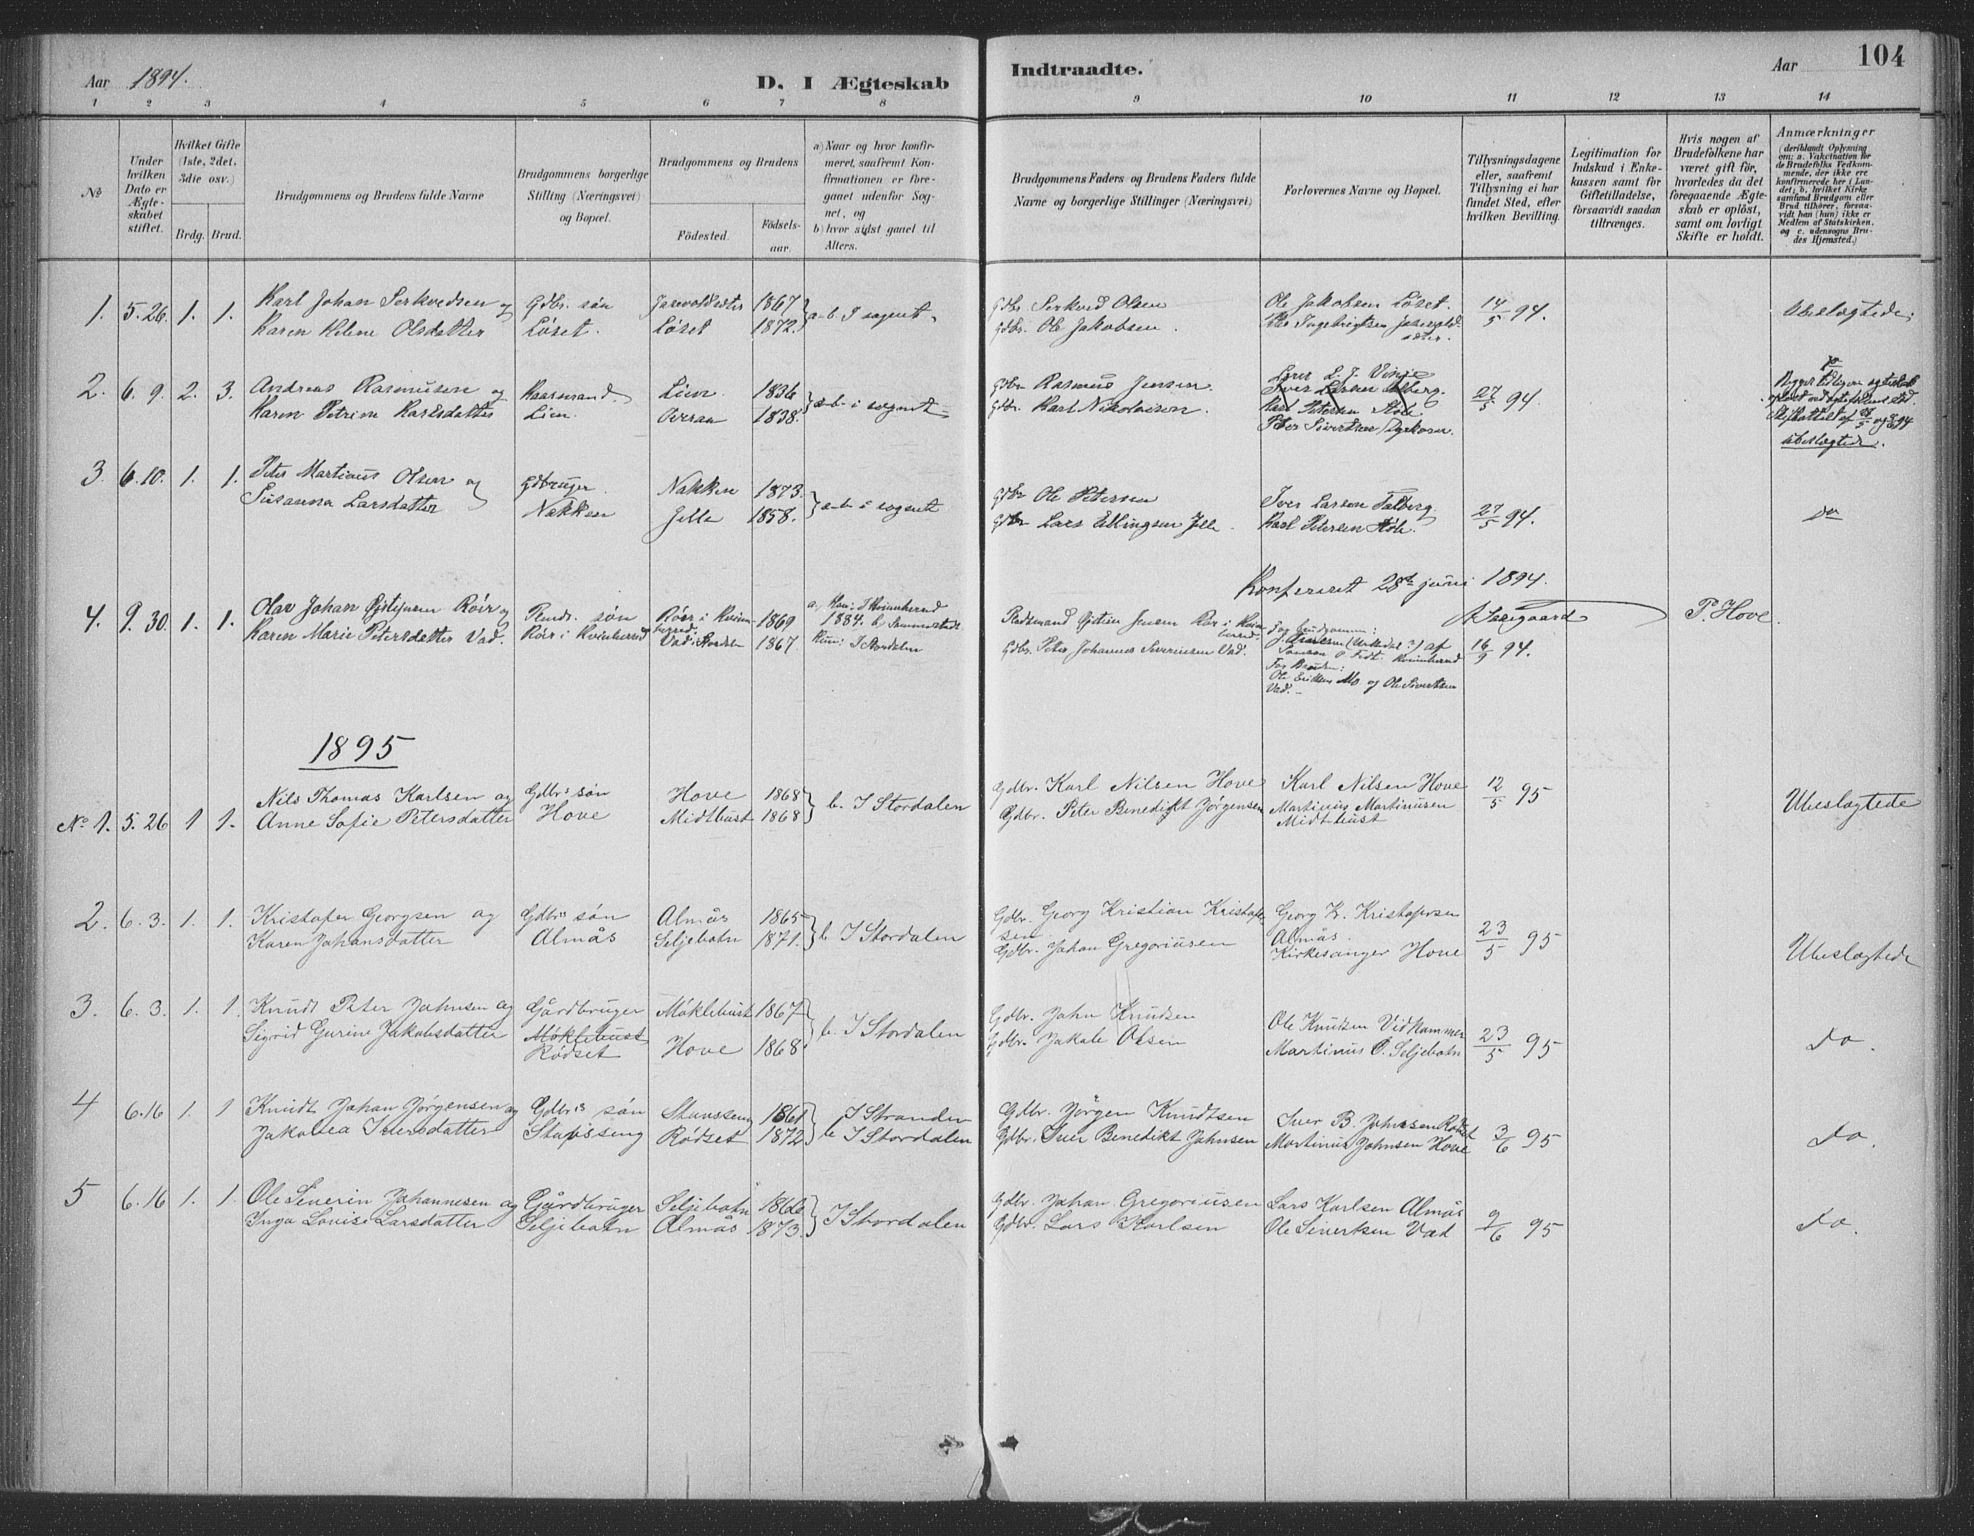 Aar 1894.
D. I Ægteskab Indtraadte.
Aar 104
1 2 3 4 5 6 7 8 9 10 11 12 13 14
№
Under hvilken Dato er Ægteskabet stiftet.
Hvilket Gifte (1ste, 2det, 3die osv.)
Brdg. Brud.
Brudgommens og Brudens fulde Navne
Brudgommens borgerlige Stilling (Næringsvei) og Bopæl.
Brudgommens og Brudens
Fødested. Fødselsaar.
a) Naar og hvor konfirmeret, saafremt Konfirmationen er foregaaet udenfor Sognet, og
b) hvor sidst gaaet til Alters.
Brudgommens Faders og Brudens Faders fulde Navne og borgerlige Stillinger (Næringsvei)
Forlovernes Navne og Bopæl.
Tillysningsdagene eller, saafremt Tillysning ei har fundet Sted, efter hvilken Bevilling.
Legitimation for Indskud i Enkekassen samt for Giftetilladelse, forsaavidt saadan tiltrænges.
Hvis nogen af Brudefolkene har været gift før, hvorledes da det foregaaende Ægteskab er opløst, samt om lovligt Skifte er holdt.
Anmærkninger
(deriblandt Oplysning om: a. Vakcination for de Brudefolks Vedkommende, der ikke ere konfirmerede her i Landet; b. hvilket Kirkesamfund Brudgom eller Brud tilhører, forsaavidt han (hun) ikke er Medlem af Statskirken, og c. udensogns Brudes Hjemsted.)
1. 5.26. 1. 1. Karl Johan Serkvedsen og Gdbr. søn 1867 a-b I sognet. Gdbr Serkved Olsen Ole Jakobsen Løset. 14/5 94. Ubeslægtede.
Karen Helene Olsdatter Løset. Løset 1872. Gdbr. Ole Jakobsen.
2. 6. 9. 2. 3. Andreas Rasmusen og Lien. 1836 a-b i sognet Gdbr Rasmus Jensen. Lærer L. J. Vinje 27/5 94.
Karen Petrine Karlsdatter Lien. Overaa 1838. Gdbr. Karl Nikolaisen. Iver Larsen Talberg.
Karl Petersen Hole
Peter Sivertsen Dyrkorn.
ubeslægtede.
3. 6.10. 1. 1. Peter Martinus Olsen og Gdbruger Nakken 1873. a-b i sognet Gdbr Ole Petersen Iver Larsen Talberg 27/5 94. do
Susanna Larsdatter Nakken Jelle 1858. Gdbr Lars Ellingsen Jelle. Karl Petersen Hole.
Konfereret 28de juni 1894.
A. Seegaard P. Hove.
4. 9.30. 1. 1. Olav Johan Øjstejnsen Röir og søn Röir i Kvinnherred 1869 a) Ham: I Kvinnherred 1884. b)
Karen Marie Petersdatter Vad. Röir i Kvinherred Vad i Stordalen 1867. Hun: I Stordalen
Jensen Röir i Kvinherred.
Gdbr. Peter Johannes Severinsen Vad.
For brudgommen: af
Kvinherred
For Bruden:
Ole Eriksen Mo og Ole Sivertsen Vad.
16/9 94.
1895
No 1. 5.26 1 1. Nils Thomas Karlsen og Gdbrs søn Hove 1868 b. I Stordalen Gdbr. Karl Nilsen Hove Karl Nilsen Hove 12/5 95 Ubeslægtede
Anne Sofie Petersdatter Hove Midthust 1868 Gdbr. Peter Benedikt Jörgensen Martinus Martinusen Midthust
2. 6. 3. 1. 1. Kristofer Georgsen og Gdbrs søn Almås 1865 b. I Stordalen Gdbr. Georg Kristian Kristofersen Georg K. Kristofersen Almås. 23/5 95 Ubeslægtede
Karen Johansdatter Almås Seljebotn 1871. Gdbr. Johan Gregoriusen Kirkesanger Hove
3. 6. 3. 1. 1. Knudt Peter Johnsen og Gårdbruger Møklebust 1867 b. I Stordalen Gdbr. John Knudsen Ole Knudsen Vidhammer 23/5 95 do.
Sigrid Gurine Jakobsdatter Møklebust Rødset Hove 1868 Gdbr. Jakob Olsen Martinus O. Seljebotn
4 6.16 1. 1 Knudt Johan Jørgensen og Gdbrs søn Stavseng 1861 I Stranden Gdbr. Jørgen Knudtsen Iver B. Johnsen Rødset 3/6 95 do.
Jakobea Iversdatter Stavseng Rødset 1872 b. I Stordalen Gdbr. Iver Benedikt Johnsen Martinus Johnsen Hove
5 6.16 1. 1. Ole Severin Johannesen og Gårdbruger Seljebotn 1866 I Stordalen Gdbr. Johan Gregoriusen Lars Karlsen Almås 9/6 95 do.
Inga Lovise Larsdatter Seljebotn Almås 1873. Gdbr. Lars Karlsen Ole Sivertsen Vad